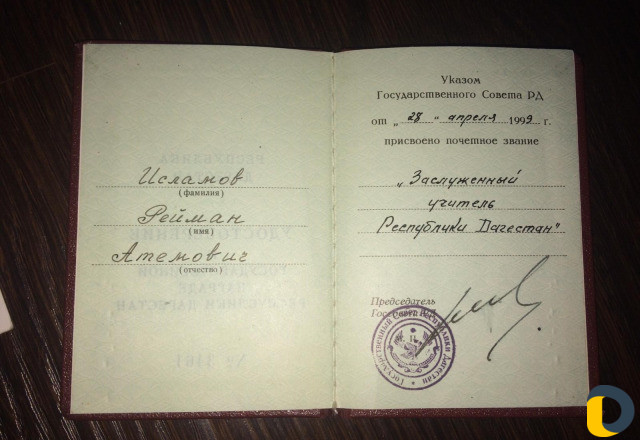 Исламов
(фамилия)
Рейман
(имя)
Атемович
(отчество)
Указом
Государственного Совета РД
от „28" апреля 1999 г.
присвоено почетное звание
„Заслуженный
учитель
Республики Дагестан"
Председатель
Госсовета РД